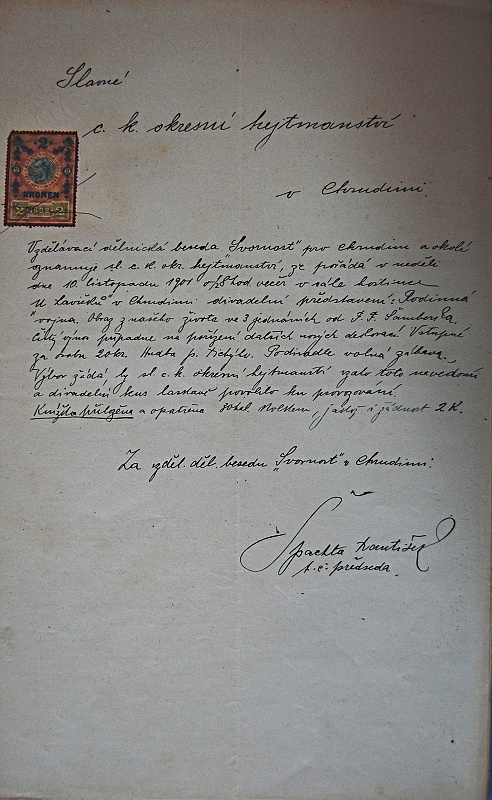 Slavné
c. k. okresní hejtmanství
v Chrudimi.
2
KRONEN
2 1898 2
Vzdělávací dělnická beseda "Svornost" pro Chrudim a okolí
oznamuje sl. c. k. okr. hejtmanství, že pořádá v neděli
dne 10. listopadu 1901 o 8 hod večer v sále hostince
u Lavičků v Chrudimi divadelní představení "Rodinná
vojna. Obraz z našeho života ve 3 jednáních od F. F. Šamberka.
Čistý výnos připadne na pořízení dalších nových dekorací. Vstupné
za osobu 20 kr. Hudba p. Po divadle volná zábava.
Výbor žádá by sl. c. k. okresní hejtmanství vzalo toto u vědomí
a divadelní kus laskavě povolilo ku provozování.
Knížka přiložena a opatřena kolkem, jakož i žádost 2 K.
Za vzděl. děl. besedu "Svornost" v Chrudimi.
Špachta František
t. č. předseda.